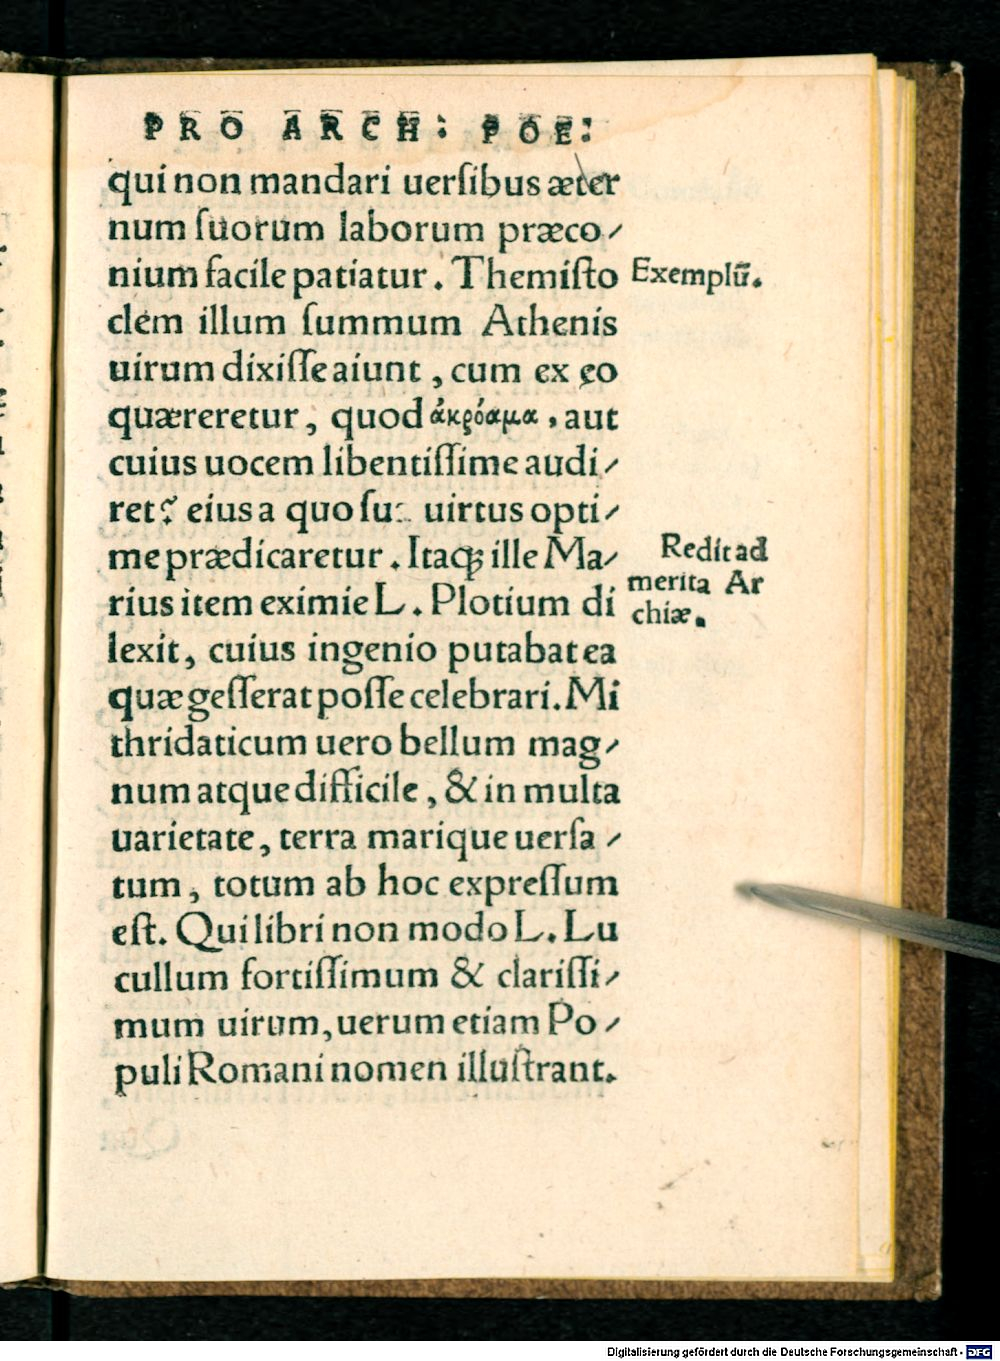 PRO ARCH: POE:
qui non mandari uerſibus æter
num ſuorum laborum præco⸗
nium facile patiatur. Themiſto
Exemplū.
clem illum ſummum Athenis
uirum dixiſſe aiunt, cum ex eo
quæreretur, quod ἀκρόαμα, aut
cuius uocem libentiſſime audi⸗
ret? eius a quo ſu uirtus opti⸗
me prædicaretur. Itaqꝫ ille Ma⸗
rius item eximie L. Plotium di
Redit ad
merita Ar
chiæ.
lexit, cuius ingenio putabat ea
quæ geſſerat poſſe celebrari. Mi
thridaticum uero bellum mag⸗
num atque difficile, & in multa
uarietate, terra marique uerſa⸗
tum, totum ab hoc expreſſum
eſt. Qui libri non modo L. Lu
cullum fortiſſimum & clariſſi⸗
mum uirum, uerum etiam Po⸗
puli Romani nomen illuſtrant.
Digitalisierung gefördert durch die Deutsche Forschungsgemeinschaft - DFG